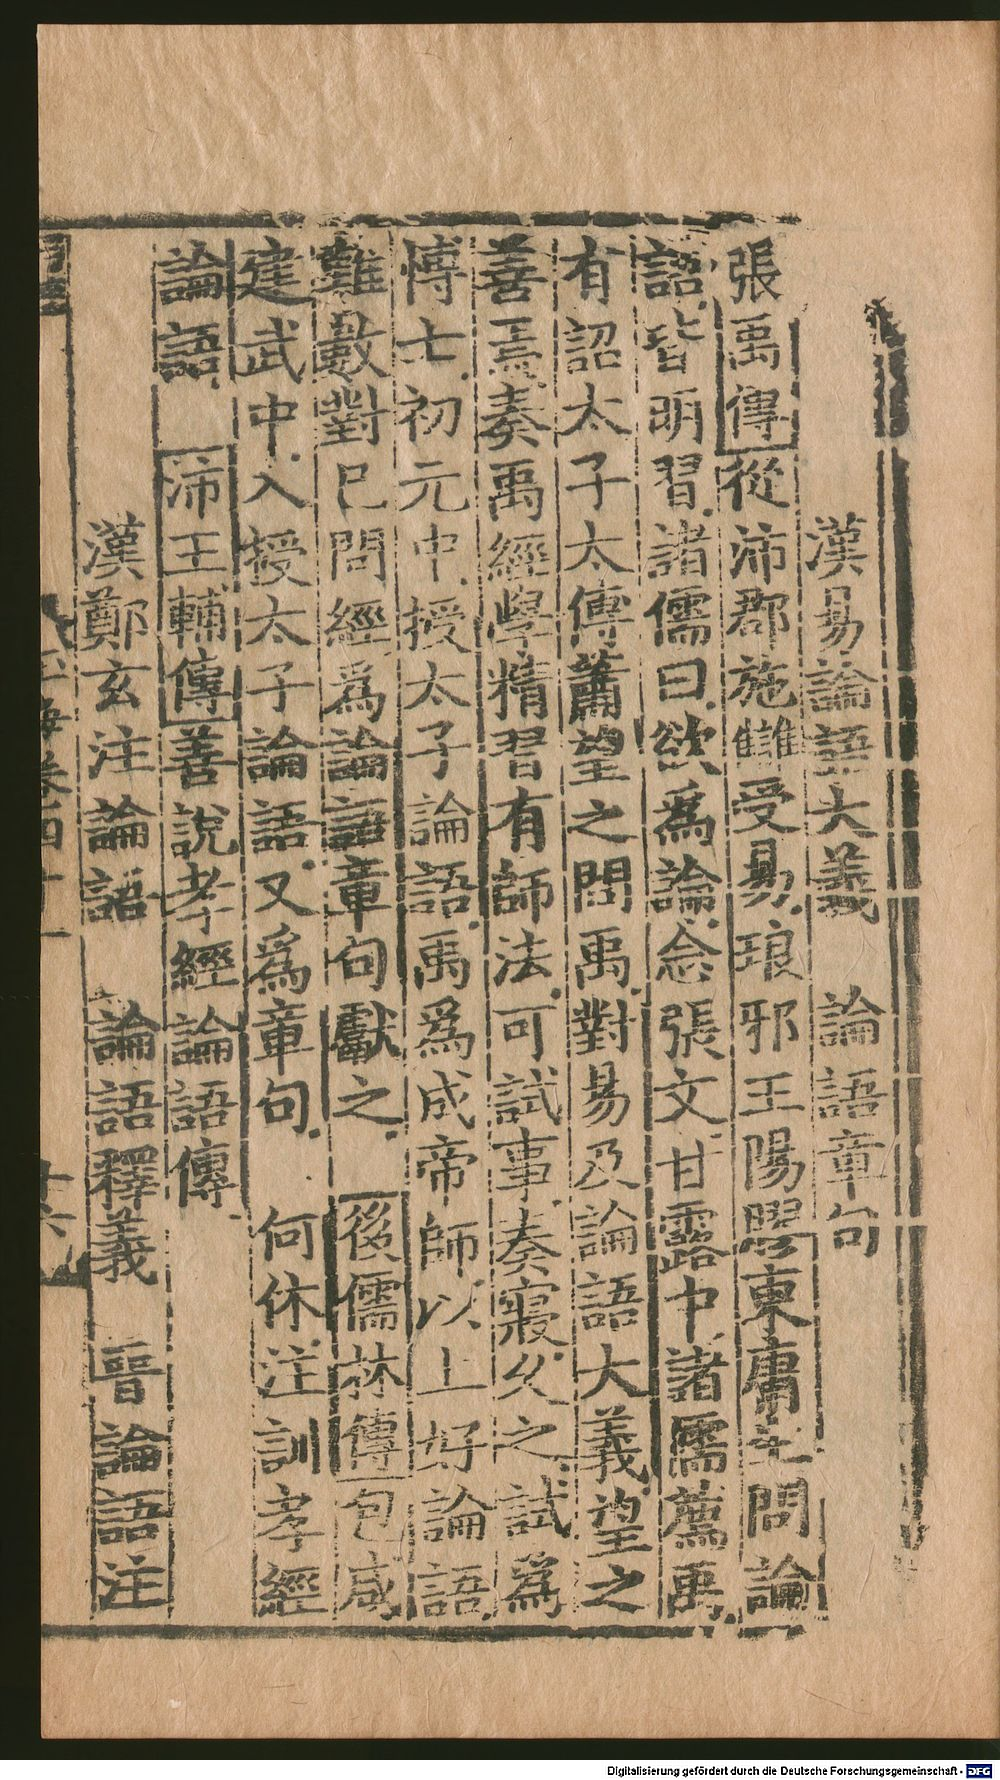 漢易論語大義　論語章句
張禹傳從沛郡施讎受易琅邪王陽膠東庸生問論
語皆明習諸儒曰欲爲論念張文甘露中諸儒薦禹
有詔太子太傅蕭望之問禹對易及論語大義望之
善焉奏禹經學精習有師法可試事奏寢久之試爲
博士初元中授太子論語禹爲成帝師以上好論語
難數對已問經爲論語章句獻之　後儒林傳包咸
建武中入授太子論語又爲章句　何休注訓孝經
論語　沛王輔傳善說孝經論語傳
漢鄭玄注論語　論語釋義　晉論語注
玉海卷四十一　十六
Digitalisierung gefördert durch die Deutsche Forschungsgemeinschaft - DFG